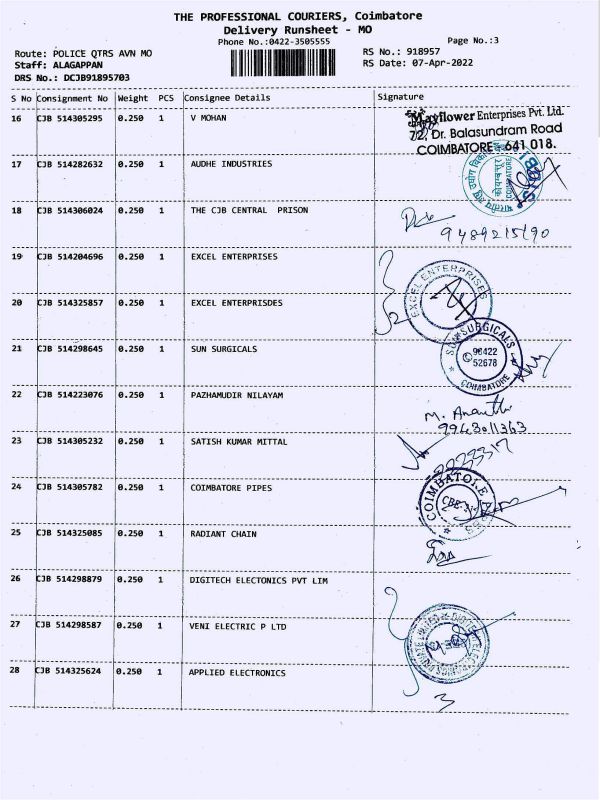 THE PROFESSIONAL COURIERS, Coimbatore
Delivery Runsheet - MO
Phone No.:0422-3505555
Page No.:3
Route: POLICE QTRS AVN MO
RS No.: 918957
Staff: ALAGAPPAN
RS Date: 07-Apr-2022
DRS No.: DCJB91895703
S No Consignment No Weight PCS Consignee Details Signature
16 CJB 514305295 0.250 1 V MOHAN
Mayflower Enterprises Pvt. Ltd.
72, Dr. Balasundram Road
COIMBATORE - 641 018.
17 CJB 514282632 0.250 1 AUDHE INDUSTRIES
COIMBATORE
18 CJB 514306024 0.250 1 THE CJB CENTRAL PRISON
9489215190
19 CJB 514204696 0.250 1 EXCEL ENTERPRISES
EXCEL ENTERPRISES
20 CJB 514325857 0.250 1 EXCEL ENTERPRISDES
2
21 CJB 514298645 0.250 1 SUN SURGICALS
SUN SURGICALS
98422
52678
COIMBATORE
22 CJB 514223076 0.250 1 PAZHAMUDIR NILAYAM
M. Ananth
9943011363
23 CJB 514305232 0.250 1 SATISH KUMAR MITTAL
24 CJB 514305782 0.250 1 COIMBATORE PIPES
COIMBATORE
CBE
25 CJB 514325085 0.250 1 RADIANT CHAIN
26 CJB 514298879 0.250 1 DIGITECH ELECTONICS PVT LIM
27 CJB 514298587 0.250 1 VENI ELECTRIC P LTD
28 CJB 514325624 0.250 1 APPLIED ELECTRONICS
3